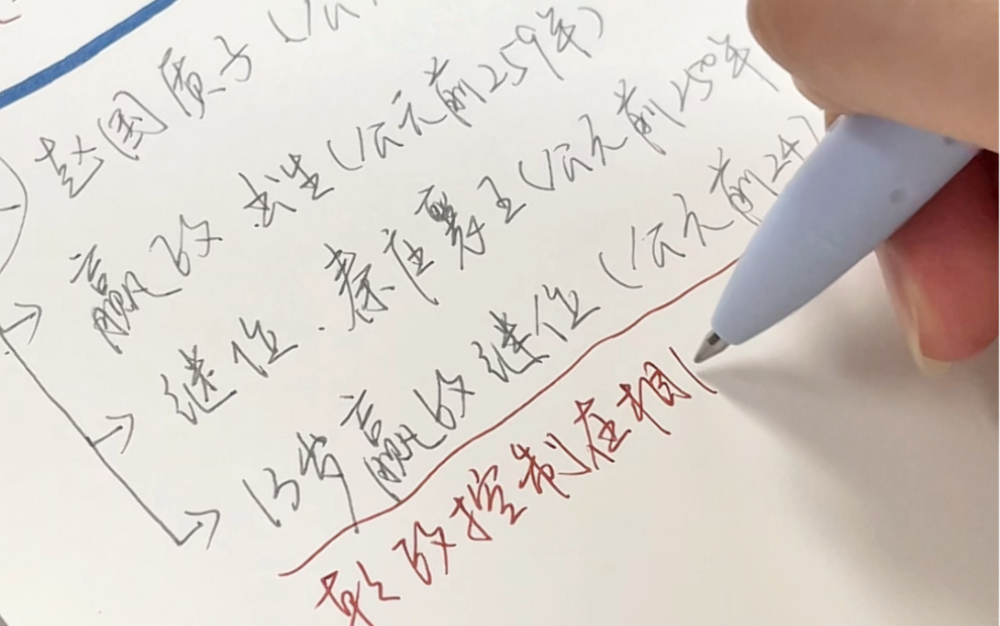 赵国质子(公
嬴政出生(公元前259年)
继位.秦庄襄王(公元前250年
13岁嬴政继位(公元前247
政控制在相